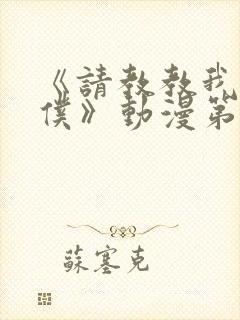 《請教教我
僕》動漫第
蘇塞克